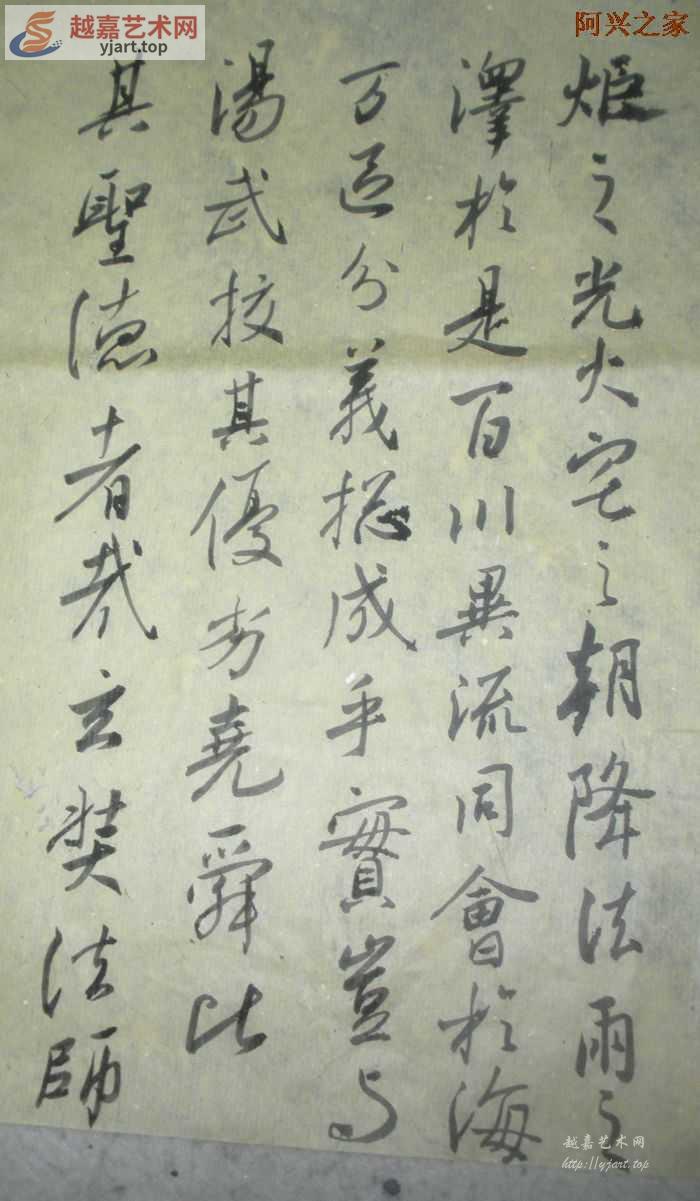 越嘉艺术网
yjart.top
阿兴之家
炬之光火宅之朝降法雨之
澤於是百川異流同會於海
万區分義揔成乎實豈与
湯武挍其優劣堯舜比
其聖德者哉玄奘法師
越嘉艺术网
http://yjart.top